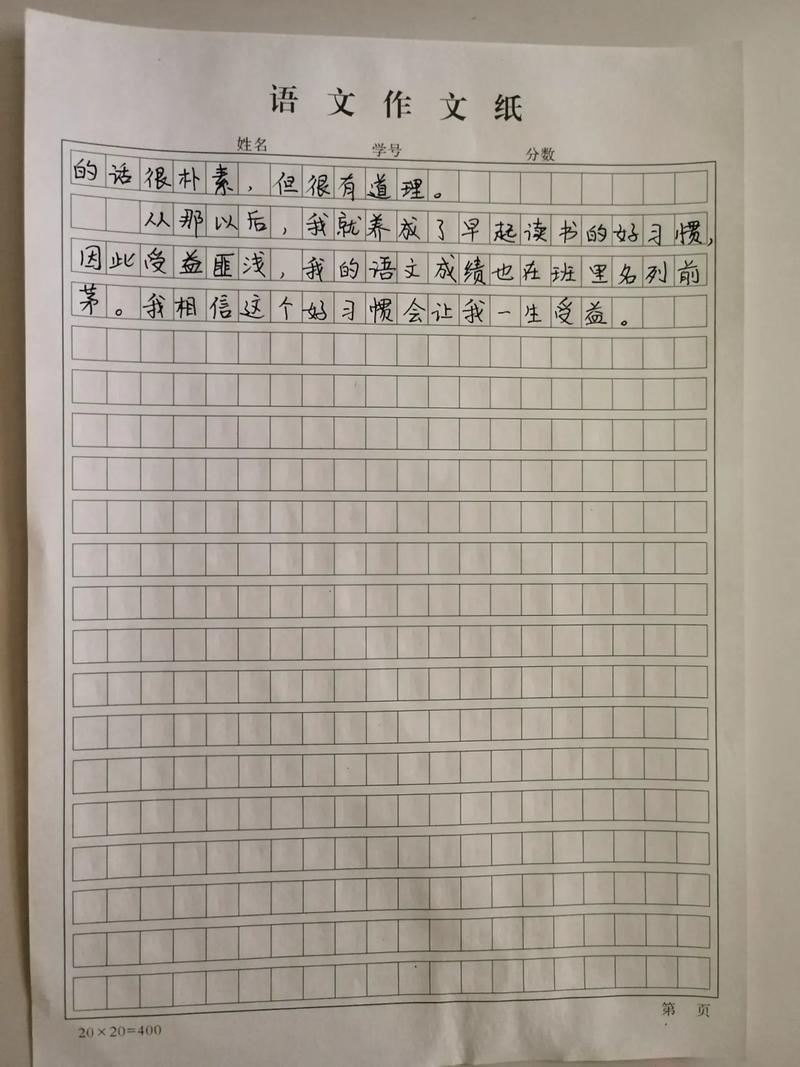 语文作文纸
姓名 学号 分数
的话很朴素，但很有道理。
从那以后，我就养成了早起读书的好习惯，
因此受益匪浅，我的语文成绩也在班里名列前
茅。我相信这个好习惯会让我一生受益。
20×20=400 第 页